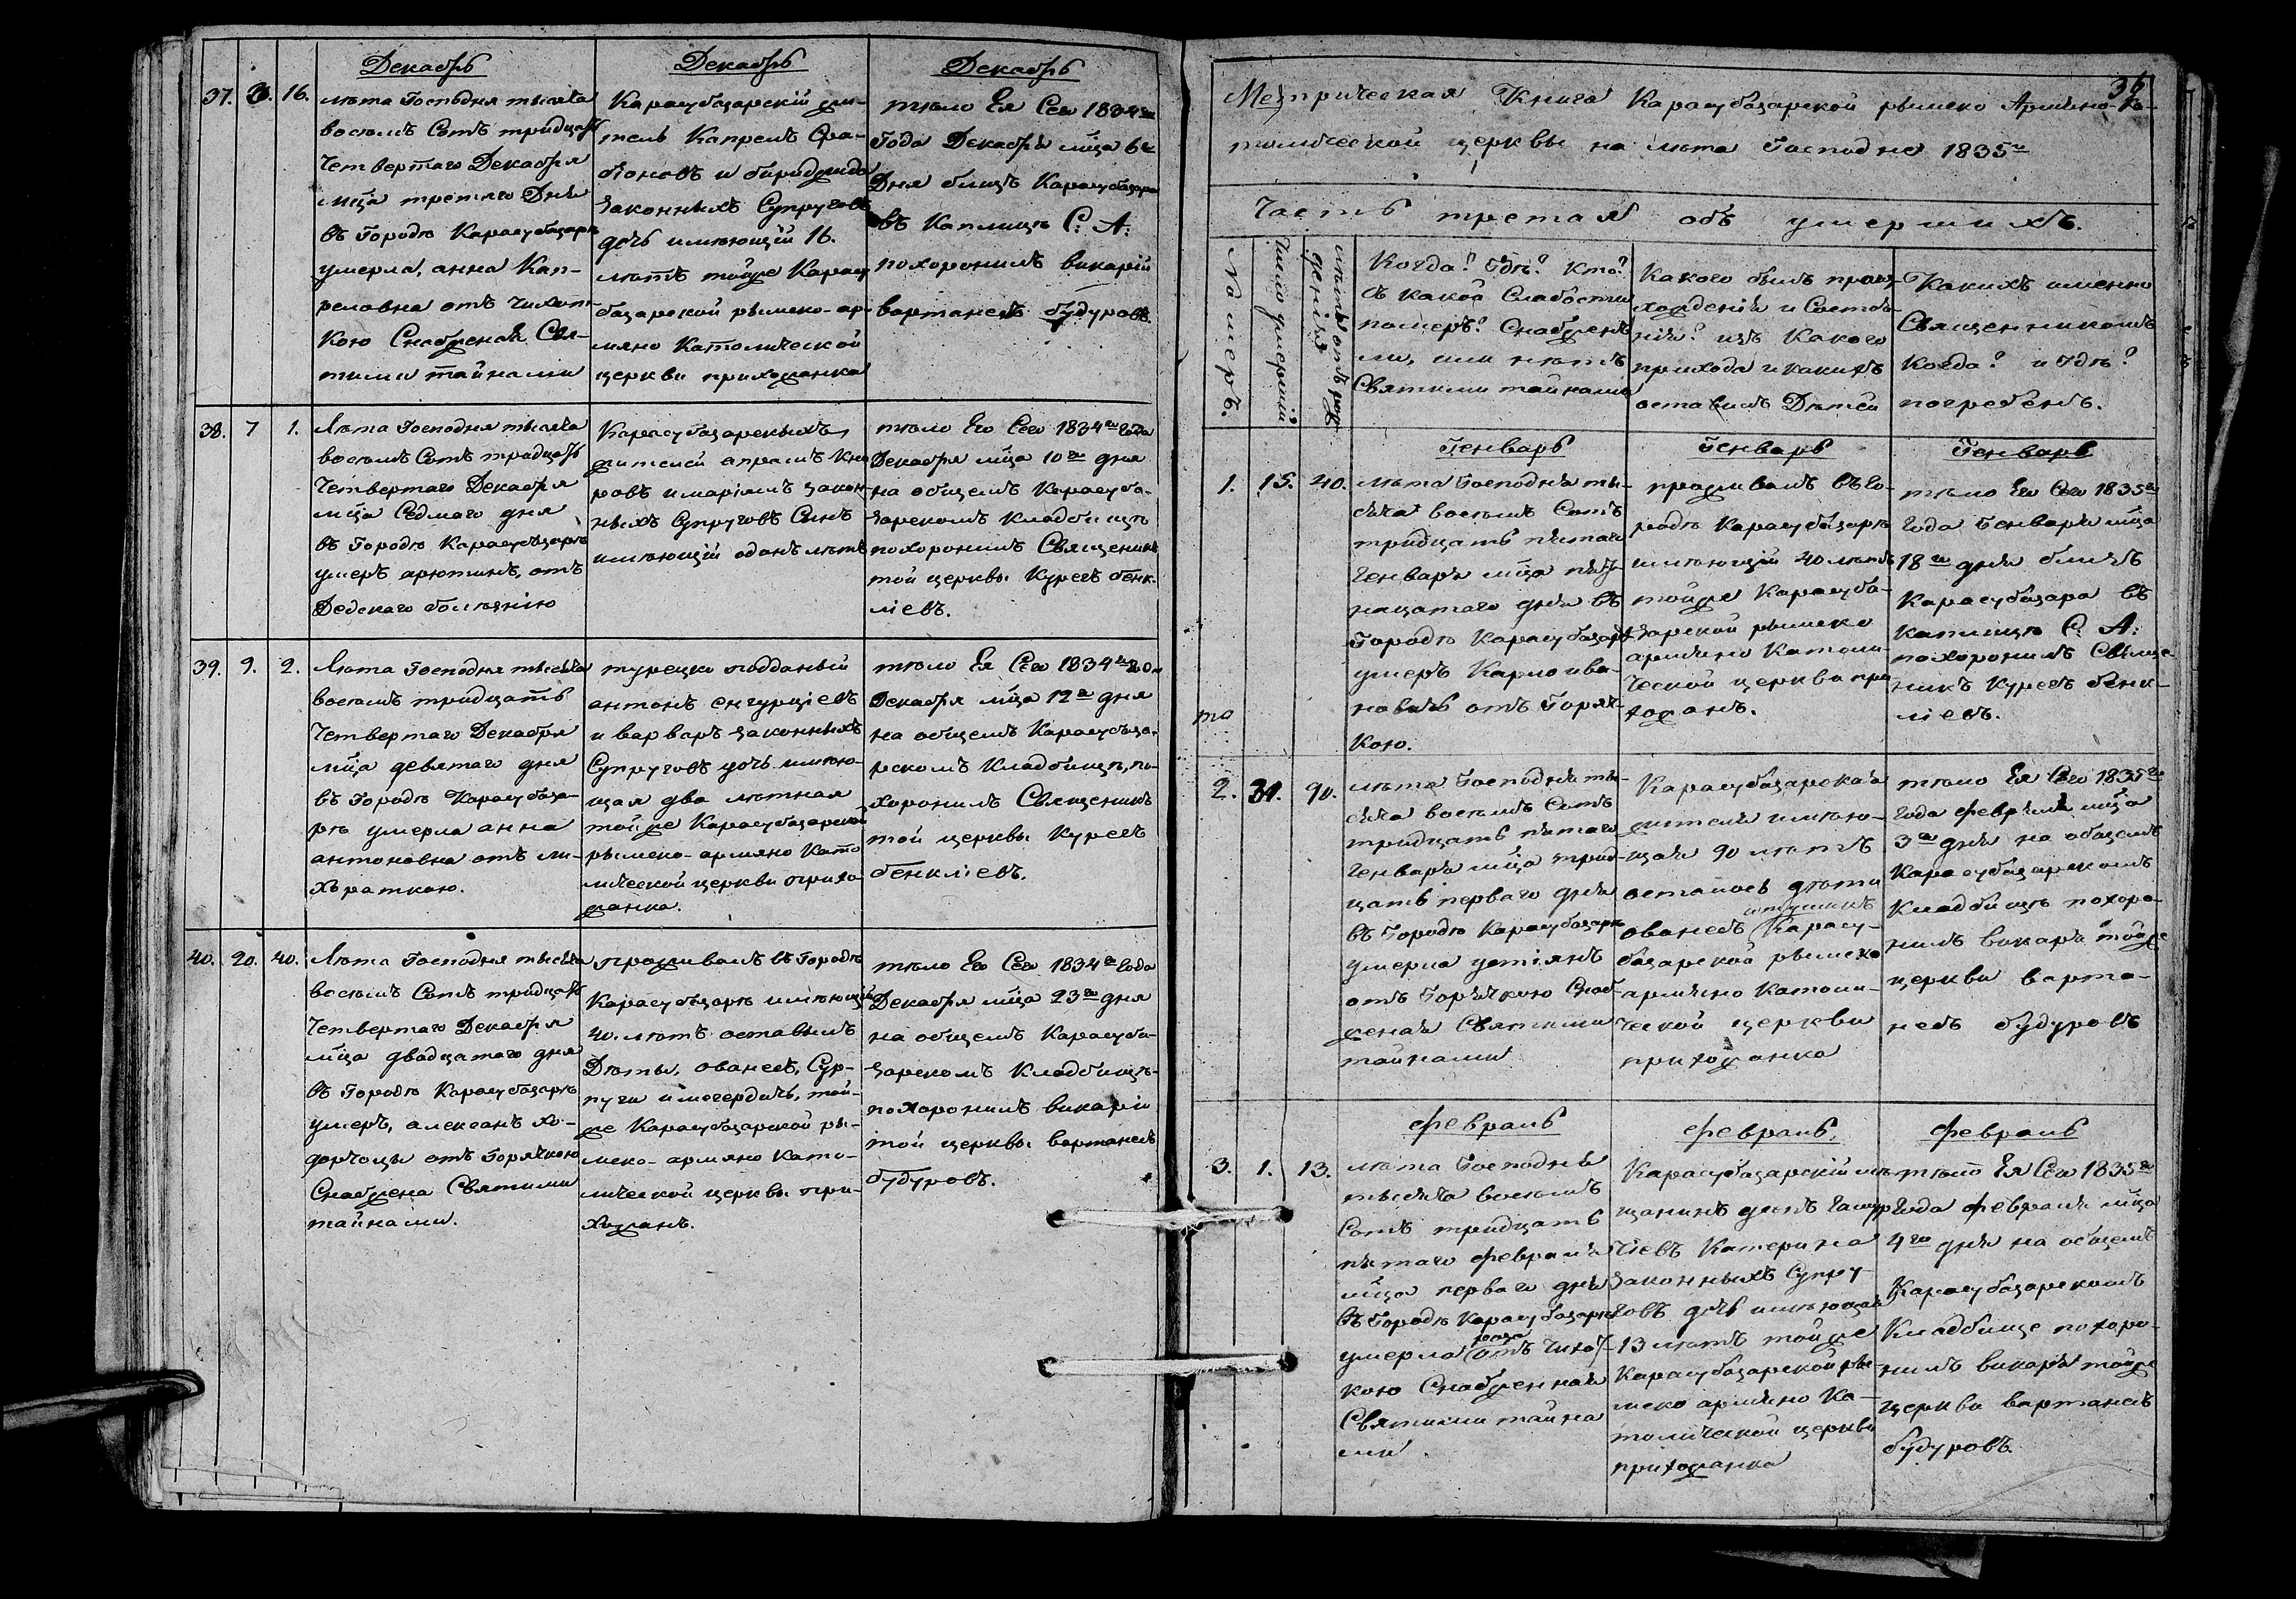 Декабрь
37. 3. 16.
лѣта Господня тысяча
восемъ Сотъ тридцать
Четвертаго Декабря
мца третяго Дня
въ Городѣ Карасубазарѣ
умерла, анна Кап-
реловна отъ Чихот-
кою Снабженая Свя-
тыми тайнами
Декабрь
Карасубазарскій жи-
тель Капрелъ
законныхъ Супруговъ
дочь имѣющій 16.
лѣтъ тойже Карасу
базарской рымско-ар-
мяно Католической
церкви прихожанка
Декабрь
тѣло Ея Сего 1834го
Года Декабря мца 6го
Дня близъ Карасубазара
въ Каплицѣ С: А:
похоронилъ викарій
вартанесъ будуровъ.
38. 7 1.
Лѣта Господня тысяча
восемъ Сотъ тридцать
Четвертаго Декабря
мца Седмаго дня
въ Городѣ Карасубазарѣ
умеръ арютинъ, отъ
Дедскаго болѣзнію
Карасубазарскыхъ
жителей апрамъ
ровъ имаріамъ закон-
ныхъ Супруговъ Сынъ
имѣющій одонъ лѣтъ
тѣло Его Сего 1834го Года
Декабря мца 10го дня
на общемъ Карасуба-
зарскомъ Кладбищѣ
похоронилъ Священикъ
той церквы Курегъ бенк-
ліевъ.
39. 9. 2.
Лѣта Господня тысяча
восемъ тридцать
Четвертаго Декабря
мца девятаго дня
въ Городѣ Карасубаза-
рѣ умерла анна
антоновна отъ ли-
хораткою.
турецко подданый
антонъ сенгурціевъ
и варваръ законныхъ
Супруговъ дочь имѣю-
щая два лѣтная
тойже Карасубазарской
рымско-армяно Като
лической церкви прихо-
жанка.
тѣло Ея Сего 1834го Го
Декабря мца 12го дня
на общемъ Карасубаза-
рскомъ Кладбищѣ, по-
хоронилъ Священикъ
той церквы Курегъ
бенкліевъ.
40. 20. 40.
Лѣта Господня тысяча
восемъ Сотъ тридцать
Четвертаго Декабря
мца двадцатаго дня
въ Городѣ Карасубазарѣ
умеръ, алексанъ хо-
отъ Горячкою
Снабжена Святыми
тайнами.
проживалъ въ Городѣ
Карасубазарѣ имѣющій
40. лѣтъ оставилъ
Дѣты, ованесъ, Сур-
пуги имогердичь, той-
же Карасубазарской ры-
мско-армяно Като-
лической церквы при-
хожанъ.
тѣло Его Сего 1834го Года
Декабря мца 23го дня
на общемъ Карасуба-
зарскомъ Кладбищѣ-
похоронилъ викарій
той церквы вартанесъ
будуровъ.
36
Метрическая Книга Карасубазарской рымско Армяно-Ка-
толической церквы на лѣта Господне 1835го
Часть третая объ умершихъ.
Номеръ.
Число умершій
лѣты отъ рож
денія
Когда? Гдѣ? Кто?
съ какой Слабости
померъ? Снабженъ
ли, или нѣтъ
Святыми тайнами
Какого былъ проис-
хожденія и Состоя-
нія? изъ Какого
прихода и какихъ
оставилъ Дѣтей
Какихъ именно
Священникомъ
Когда? и Гдѣ?
погребенъ.
Генварь
Генварь
Генварь
1. 15. 40.
лѣта Господня ты-
сяча восемъ Сотъ
тридцать пятаго
Генваря мца пят-
нацатаго дня въ
Городѣ Карасубазарѣ
умеръ Карпо ива-
новъ отъ Горяч-
кою.
проживалъ въ Го-
родѣ Карасубазарѣ
имѣющій 40 лѣтъ
тойже Карасуба-
зарской рымско
армяно Католи-
ческой церкви при
хожанъ.
тѣло Его Сего 1835го
Года Генваря мца
18го дня близъ
Карасубазара въ
каплицѣ С: А:
похоронилъ Свяще-
никъ Курегъ бенк-
ліевъ.
то
2. 31. 90.
лѣта Господня ты-
сяча восемъ Сотъ
тридцать пятаго
Генваря мца трид-
цать перваго дня
въ Городѣ Карасубазарѣ
умерла устіянъ
отъ Горячкою Снаб-
женая Святыми
тайнами
Карасубазарская
жителя имѣю-
щая 90 лѣтъ
осталось дѣти
ованесъ Карасу-
базарской рымско
армяно Католи-
ческой церкви
прихожанка
тѣло Ея Сего 1835го
Года февраля мца
3го дня на общемъ
Карасубазарскомъ
Кладбищѣ похоро-
нилъ викарія тойже
церкви варта-
несъ будуровъ
февраль
февраль,
февраль
3. 1. 13.
лѣта Господня
тысяча восемъ
Сотъ тридцать
пятаго февраля
мца перваго дня
въ Городѣ Карасубазарѣ
умерла отъ Чихот-
кою Снабженная
Святыми тайна
ми.
Карасубазарскій мѣ-
щанинъ
Катерина
законныхъ Супру-
говъ дочь имѣющая
13 лѣтъ тойже
Карасубазарской ры-
мско армяно Ка-
толической церкви
прихожанка
тѣло Ея Сего 1835го
Года февраля мца
4го дня на общемъ
Карасубазарскомъ
Кладбище похоро-
нилъ викарія тойже
церкви вартанесъ
будуровъ.